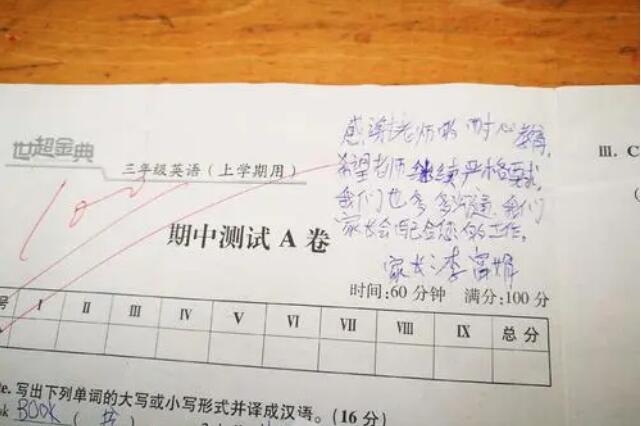 世超金典
三年级英语(上学期用)
100
期中测试 A 卷
感谢老师的耐心教育,
希望老师继续严格要求,
我们也多多沟通,我们
家长会配合您的工作。
家长:李富娟
时间:60 分钟 满分:100 分
号 I II III IV V VI VII VIII IX 总 分
te. 写出下列单词的大写或小写形式并译成汉语。(16 分)
ok BOOK ( 书 )
III. C